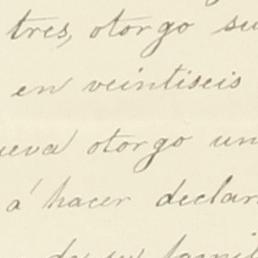 tres, otorgo su
en veintiseis
ueva otorgo un
á hacer declar
de su famil